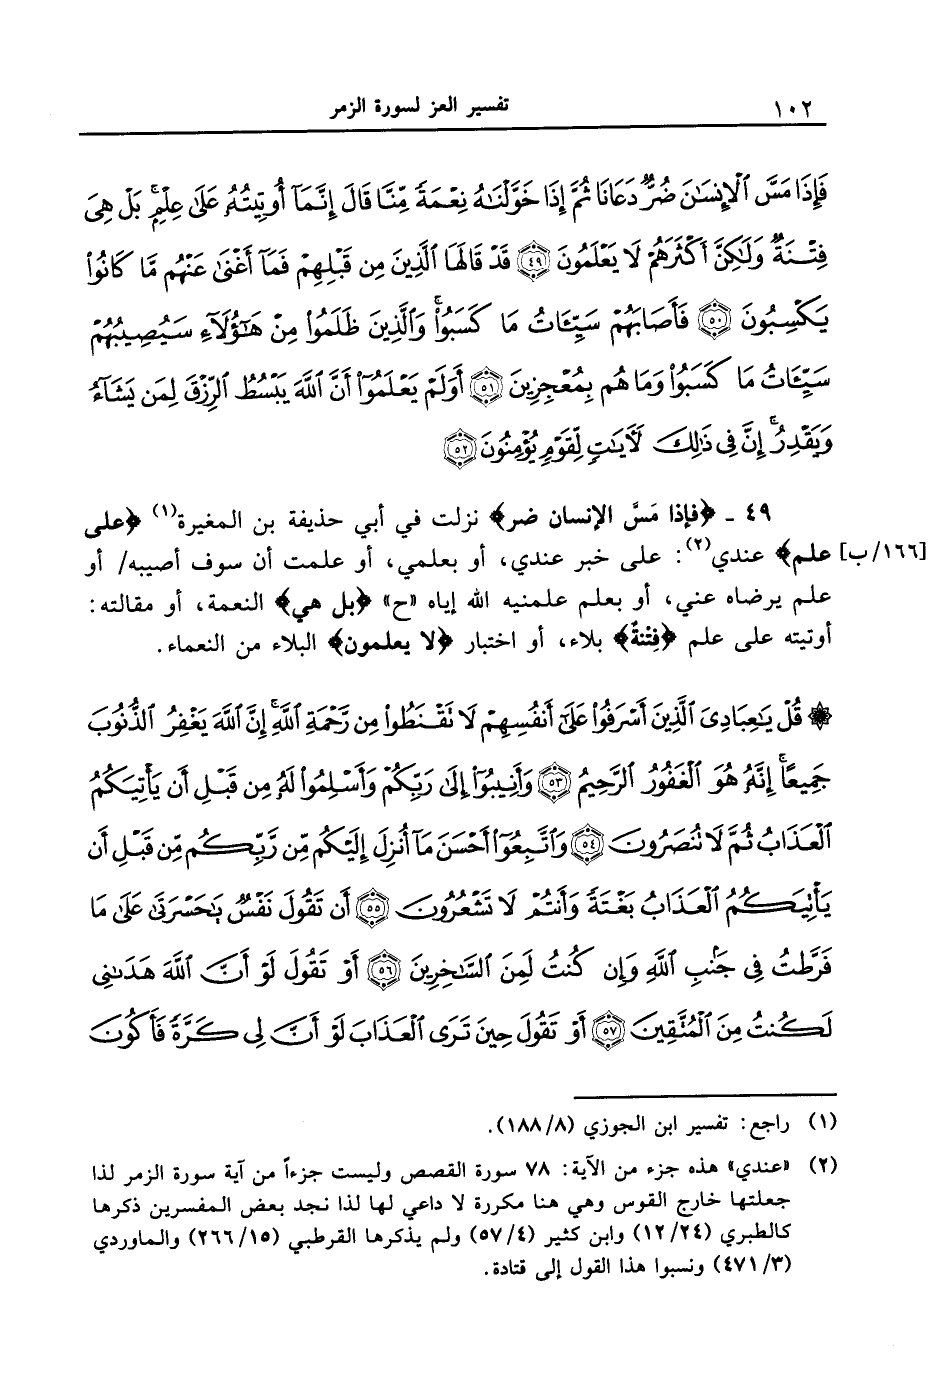 ١٠٢ تفسير العز لسورة الزمر
فَإِذَا مَسَّ ٱلْإِنسَٰنَ ضُرٌّ دَعَانَا ثُمَّ إِذَا خَوَّلْنَٰهُ نِعْمَةً مِّنَّا قَالَ إِنَّمَآ أُوتِيتُهُۥ عَلَىٰ عِلْمٍۭ ۚ بَلْ هِىَ
فِتْنَةٌ وَلَٰكِنَّ أَكْثَرَهُمْ لَا يَعْلَمُونَ ٤٩ قَدْ قَالَهَا ٱلَّذِينَ مِن قَبْلِهِمْ فَمَآ أَغْنَىٰ عَنْهُم مَّا كَانُوا۟
يَكْسِبُونَ ٥٠ فَأَصَابَهُمْ سَيِّـَٔاتُ مَا كَسَبُوا۟ ۚ وَٱلَّذِينَ ظَلَمُوا۟ مِنْ هَٰٓؤُلَآءِ سَيُصِيبُهُمْ
سَيِّـَٔاتُ مَا كَسَبُوا۟ وَمَا هُم بِمُعْجِزِينَ ٥١ أَوَلَمْ يَعْلَمُوٓا۟ أَنَّ ٱللَّهَ يَبْسُطُ ٱلرِّزْقَ لِمَن يَشَآءُ
وَيَقْدِرُ ۚ إِنَّ فِى ذَٰلِكَ لَءَايَٰتٍ لِّقَوْمٍ يُؤْمِنُونَ ٥٢
٤٩ - ﴿فإذا مَسَّ الإنسان ضر﴾ نزلت في أبي حذيفة بن المغيرة(١) ﴿على
[١٦٦/ب] علم﴾ عندي(٢): على خبر عندي، أو بعلمي، أو علمت أن سوف أصيبه/ أو
علم يرضاه عني، أو بعلم علمنيه الله إياه «ح» ﴿بل هي﴾ النعمة، أو مقالته:
أوتيته على علم ﴿فِتْنةٌ﴾ بلاء، أو اختبار ﴿لا يعلمون﴾ البلاء من النعماء.
۞ قُلْ يَٰعِبَادِىَ ٱلَّذِينَ أَسْرَفُوا۟ عَلَىٰٓ أَنفُسِهِمْ لَا تَقْنَطُوا۟ مِن رَّحْمَةِ ٱللَّهِ ۚ إِنَّ ٱللَّهَ يَغْفِرُ ٱلذُّنُوبَ
جَمِيعًا ۚ إِنَّهُۥ هُوَ ٱلْغَفُورُ ٱلرَّحِيمُ ٥٣ وَأَنِيبُوٓا۟ إِلَىٰ رَبِّكُمْ وَأَسْلِمُوا۟ لَهُۥ مِن قَبْلِ أَن يَأْتِيَكُمُ
ٱلْعَذَابُ ثُمَّ لَا تُنصَرُونَ ٥٤ وَٱتَّبِعُوٓا۟ أَحْسَنَ مَآ أُنزِلَ إِلَيْكُم مِّن رَّبِّكُم مِّن قَبْلِ أَن
يَأْتِيَكُمُ ٱلْعَذَابُ بَغْتَةً وَأَنتُمْ لَا تَشْعُرُونَ ٥٥ أَن تَقُولَ نَفْسٌ يَٰحَسْرَتَىٰ عَلَىٰ مَا
فَرَّطتُ فِى جَنۢبِ ٱللَّهِ وَإِن كُنتُ لَمِنَ ٱلسَّٰخِرِينَ ٥٦ أَوْ تَقُولَ لَوْ أَنَّ ٱللَّهَ هَدَىٰنِى
لَكُنتُ مِنَ ٱلْمُتَّقِينَ ٥٧ أَوْ تَقُولَ حِينَ تَرَى ٱلْعَذَابَ لَوْ أَنَّ لِى كَرَّةً فَأَكُونَ
(١) راجع: تفسير ابن الجوزي (١٨٨/٨).
(٢) «عندي» هذه جزء من الآية: ٧٨ سورة القصص وليست جزءاً من آية سورة الزمر لذا
جعلتها خارج القوس وهي هنا مكررة لا داعي لها لذا نجد بعض المفسرين ذكرها
كالطبري (١٢/٢٤) وابن كثير (٥٧/٤) ولم يذكرها القرطبي (٢٦٦/١٥) والماوردي
(٤٧١/٣) ونسبوا هذا القول إلى قتادة.